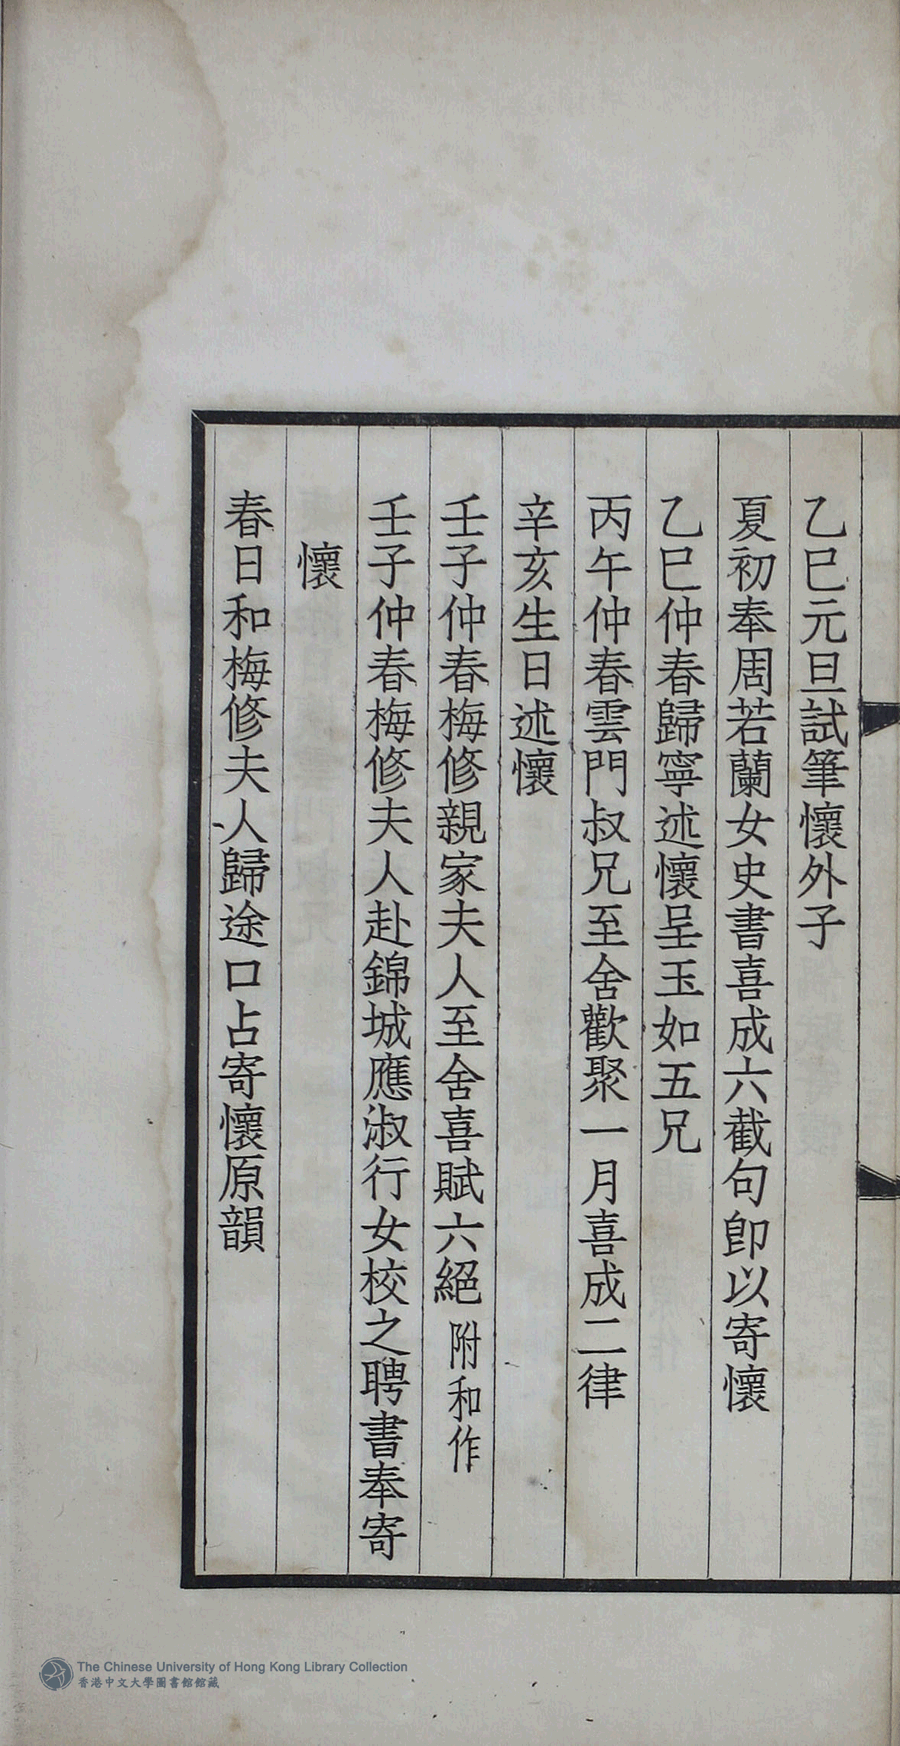 乙巳元旦試筆懷外子
夏初奉周若蘭女史書喜成六截句卽以寄懷
乙巳仲春歸寧述懷呈玉如五兄
丙午仲春雲門叔兄至舍歡聚一月喜成二律
辛亥生日述懷
壬子仲春梅修親家夫人至舍喜賦六絕 附和作
壬子仲春梅修夫人赴錦城應淑行女校之聘書奉寄
懷
春日和梅修夫人歸途口占寄懷原韻
The Chinese University of Hong Kong Library Collection
香港中文大學圖書館館藏